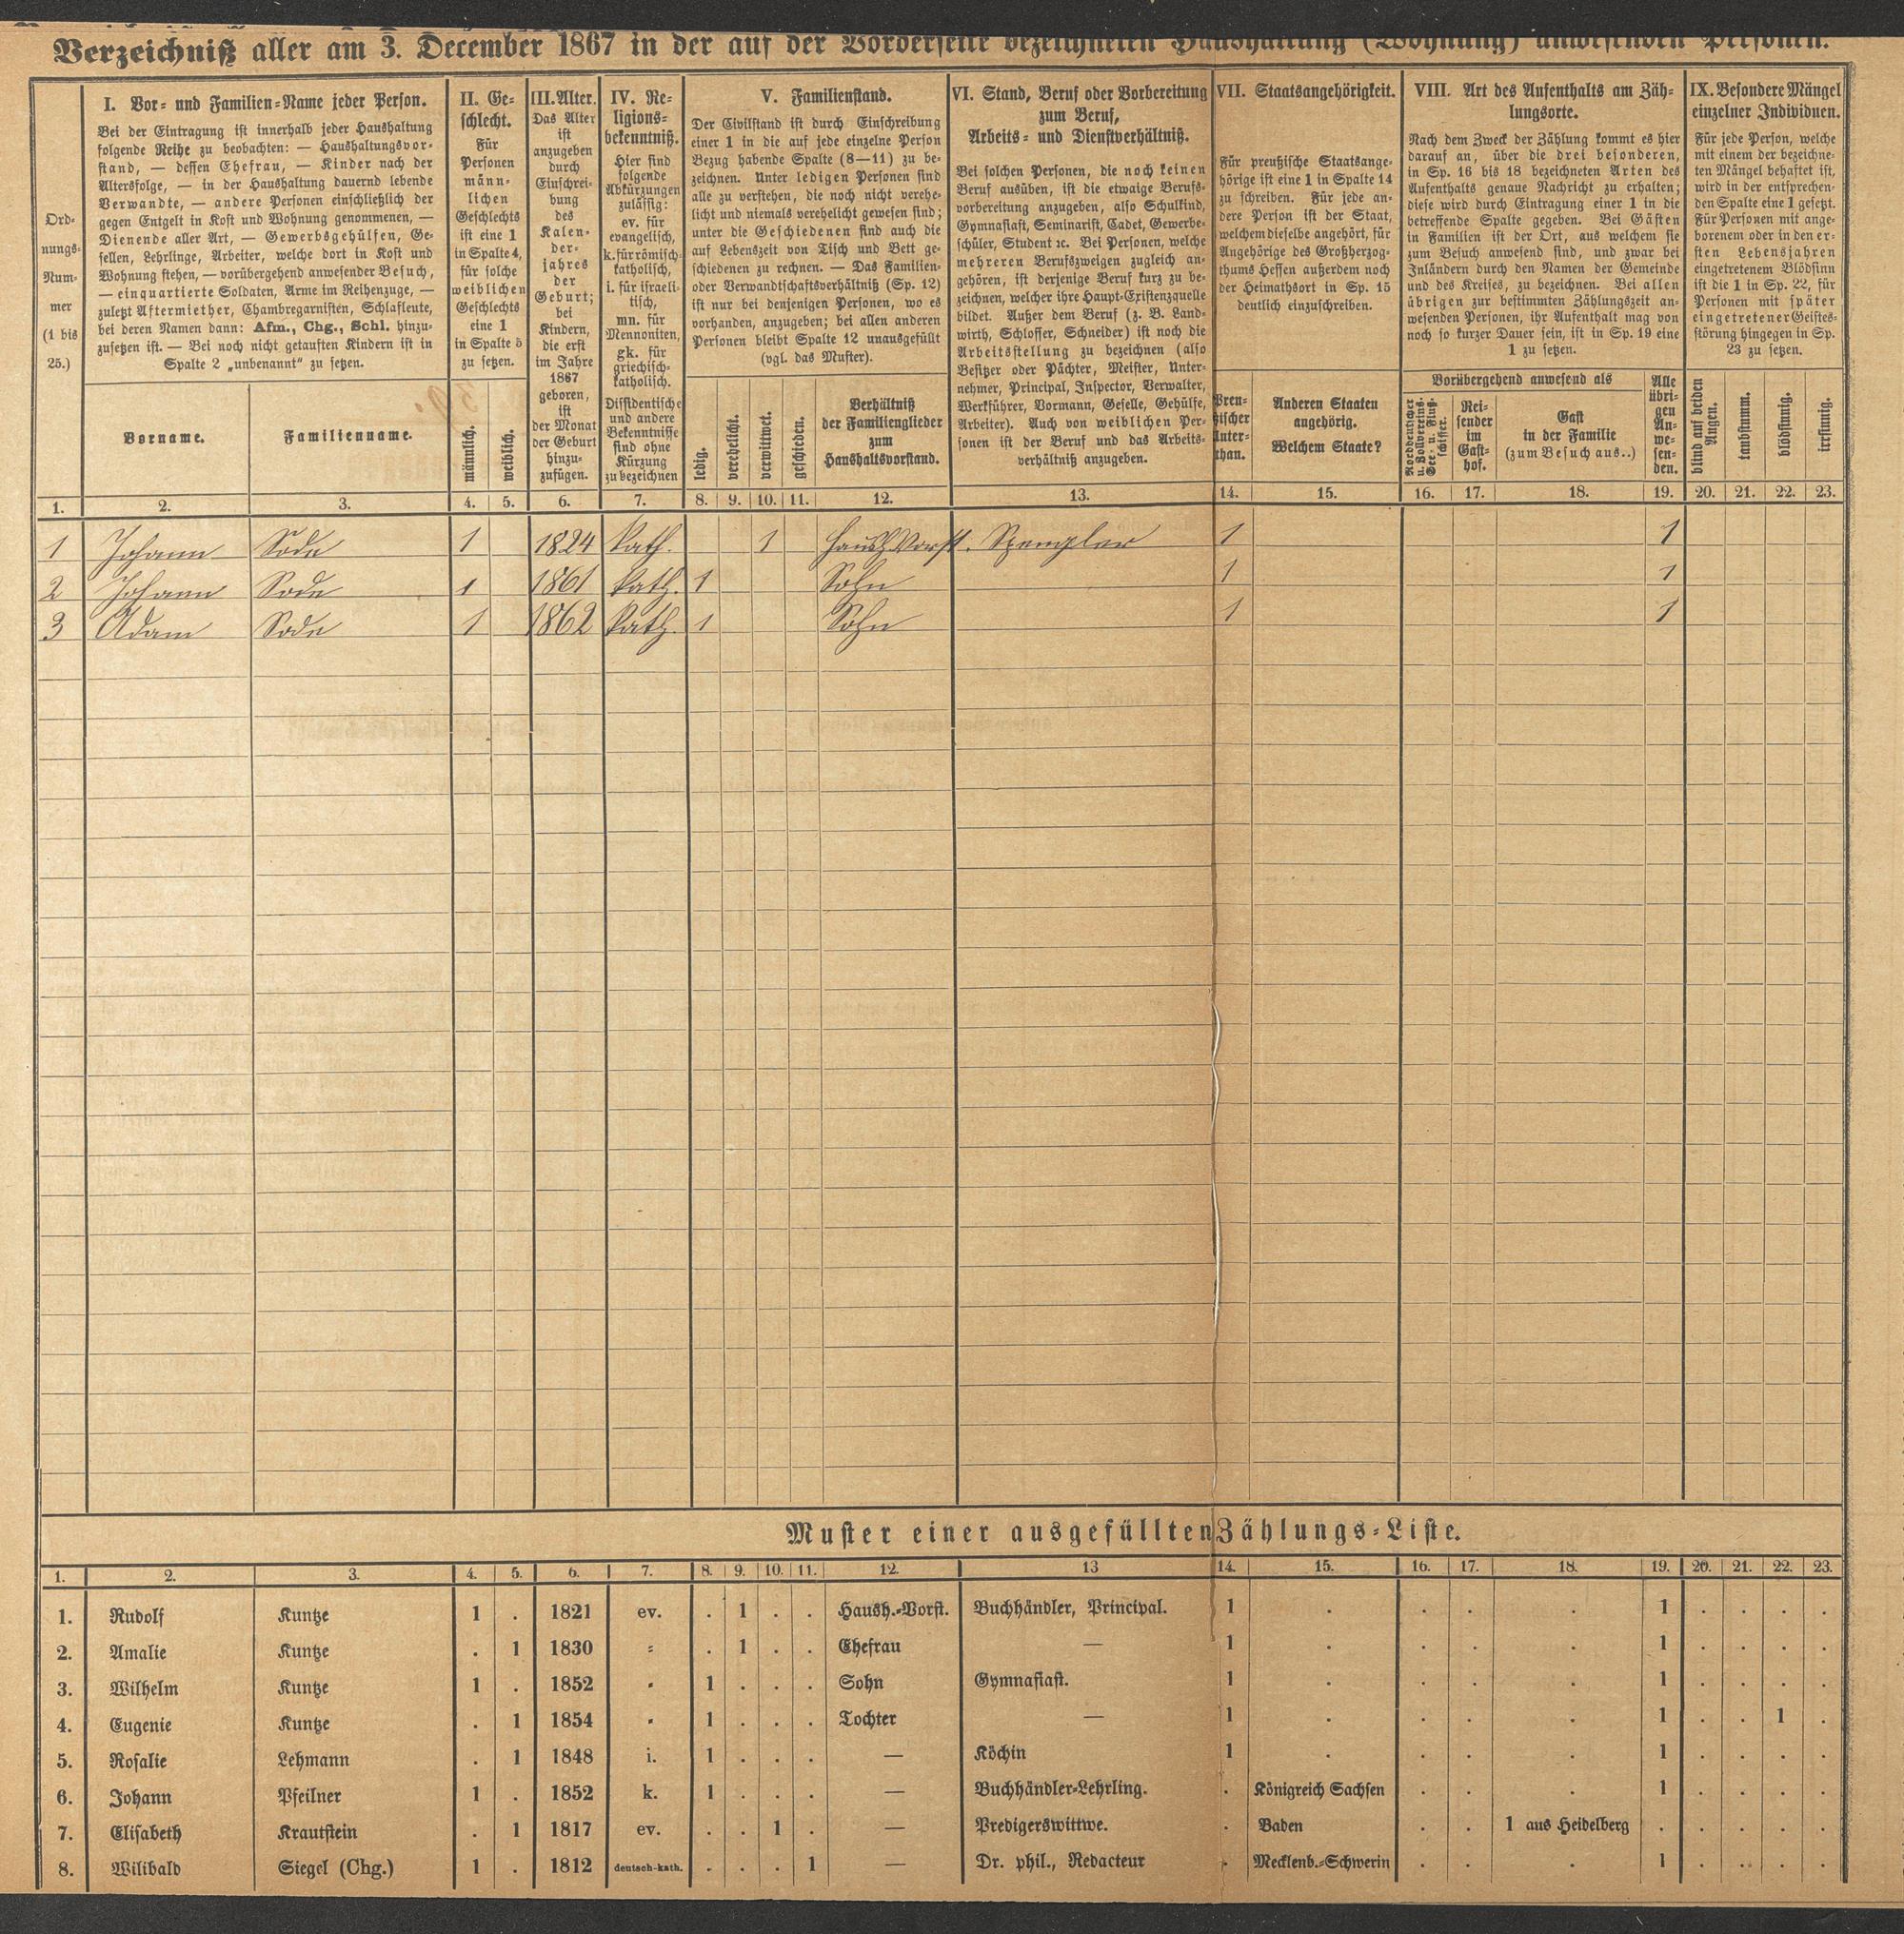 Verzeichniß aller am 3. December 1867 in der auf der Vorderseite bezeichneten Haushaltung (Wohnung) anwesenden Personen.
Ord-
nungs-
Num-
mer
(1 bis
25.)
I. Vor- und Familien-Name jeder Person.
Bei der Eintragung ist innerhalb jeder Haushaltung
folgende Reihe zu beobachten: — Haushaltungsvor-
stand, — dessen Ehefrau, — Kinder nach der
Altersfolge, — in der Haushaltung dauernd lebende
Verwandte, — andere Personen einschließlich der
gegen Entgelt in Kost und Wohnung genommenen, —
Dienende aller Art, — Gewerbsgehülfen, Ge-
sellen, Lehrlinge, Arbeiter, welche dort in Kost und
Wohnung stehen, — vorübergehend anwesender Besuch,
— einquartierte Soldaten, Arme im Reihenzuge, —
zuletzt Aftermiether, Chambregarnisten, Schlafleute,
bei deren Namen dann: Afm., Chg., Schl. hinzu-
zusetzen ist. — Bei noch nicht getauften Kindern ist in
Spalte 2 „unbenannt“ zu setzen.
Vorname.
Familienname.
II. Ge-
schlecht.
Für
Personen
männ-
lichen
Geschlechts
ist eine 1
in Spalte 4,
für solche
weiblichen
Geschlechts
eine 1
in Spalte 5
zu setzen.
männlich.
weiblich.
III. Alter.
Das Alter
ist
anzugeben
durch
Einschrei-
bung
des
Kalen-
der-
jahres
der
Geburt;
bei
Kindern,
die erst
im Jahre
1867
geboren,
ist
der Monat
der Geburt
hinzu-
zufügen.
IV. Re-
ligions-
bekenntniß.
Hier sind
folgende
Abkürzungen
zulässig:
ev. für
evangelisch,
k. für römisch-
katholisch,
i. für israeli-
tisch,
mn. für
Mennoniten,
gk. für
griechisch-
katholisch.
Dissidentische
und andere
Bekenntnisse
sind ohne
Kürzung
zu bezeichnen
V. Familienstand.
Der Civilstand ist durch Einschreibung
einer 1 in die auf jede einzelne Person
Bezug habende Spalte (8—11) zu be-
zeichnen. Unter ledigen Personen sind
alle zu verstehen, die noch nicht verehe-
licht und niemals verehelicht gewesen sind;
unter die Geschiedenen sind auch die
auf Lebenszeit von Tisch und Bett ge-
schiedenen zu rechnen. — Das Familien-
oder Verwandtschaftsverhältniß (Sp. 12)
ist nur bei denjenigen Personen, wo es
vorhanden, anzugeben; bei allen anderen
Personen bleibt Spalte 12 unausgefüllt
(vgl. das Muster).
ledig.
verehelicht.
verwittwet.
geschieden.
Verhältniß
der Familienglieder
zum
Haushaltsvorstand.
VI. Stand, Beruf oder Vorbereitung
zum Beruf,
Arbeits- und Dienstverhältniß.
Bei solchen Personen, die noch keinen
Beruf ausüben, ist die etwaige Berufs-
vorbereitung anzugeben, also Schulkind,
Gymnasiast, Seminarist, Cadet, Gewerbe-
schüler, Student ꝛc. Bei Personen, welche
mehreren Berufszweigen zugleich an-
gehören, ist derjenige Beruf kurz zu be-
zeichnen, welcher ihre Haupt-Existenzquelle
bildet. Außer dem Beruf (z. B. Land-
wirth, Schlosser, Schneider) ist noch die
Arbeitsstellung zu bezeichnen (also
Besitzer oder Pächter, Meister, Unter-
nehmer, Principal, Inspector, Verwalter,
Werkführer, Vormann, Geselle, Gehülfe,
Arbeiter). Auch von weiblichen Per-
sonen ist der Beruf und das Arbeits-
verhältniß anzugeben.
VII. Staatsangehörigkeit.
Für preußische Staatsange-
hörige ist eine 1 in Spalte 14
zu schreiben. Für jede an-
dere Person ist der Staat,
welchem dieselbe angehört, für
Angehörige des Großherzog-
thums Hessen außerdem noch
der Heimathsort in Sp. 15
deutlich einzuschreiben.
Preu-
ßischer
Unter-
than.
Anderen Staaten
angehörig.
Welchem Staate?
VIII. Art des Aufenthalts am Zäh-
lungsorte.
Nach dem Zweck der Zählung kommt es hier
darauf an, über die drei besonderen,
in Sp. 16 bis 18 bezeichneten Arten des
Aufenthalts genaue Nachricht zu erhalten;
diese wird durch Eintragung einer 1 in die
betreffende Spalte gegeben. Bei Gästen
in Familien ist der Ort, aus welchem sie
zum Besuch anwesend sind, und zwar bei
Inländern durch den Namen der Gemeinde
und des Kreises, zu bezeichnen. Bei allen
übrigen zur bestimmten Zählungszeit an-
wesenden Personen, ihr Aufenthalt mag von
noch so kurzer Dauer sein, ist in Sp. 19 eine
1 zu setzen.
Vorübergehend anwesend als
Norddeutscher
u. Zollvereins-
See- u. Fluß-
schiffer.
Rei-
sender
im
Gast-
hof.
Gast
in der Familie
(zum Besuch aus..)
Alle
übri-
gen
An-
we-
sen-
den.
IX. Besondere Mängel
einzelner Individuen.
Für jede Person, welche
mit einem der bezeichne-
ten Mängel behaftet ist,
wird in der entsprechen-
den Spalte eine 1 gesetzt.
Für Personen mit ange-
borenem oder in den er-
sten Lebensjahren
eingetretenem Blödsinn
ist die 1 in Sp. 22, für
Personen mit später
eingetretener Geistes-
störung hingegen in Sp.
23 zu setzen.
blind auf beiden
Augen.
taubstumm.
blödsinnig.
irrsinnig.
1. 2. 3. 4. 5. 6. 7. 8. 9. 10. 11. 12. 13. 14. 15. 16. 17. 18. 19. 20. 21. 22. 23.
1 Johann Sode 1 1824 kath. 1 Haush Vorst. Spengler 1 1
2 Johann Sode 1 1861 kath. 1 Sohn 1 1
3 Adam Sode 1 1862 kath. 1 Sohn 1 1
Muster einer ausgefüllten Zählungs-Liste.
1. 2. 3. 4. 5. 6. 7. 8. 9. 10. 11. 12. 13 14. 15. 16. 17. 18. 19. 20. 21. 22. 23.
1. Rudolf Kuntze 1 . 1821 ev. . 1 . . Haush.-Vorst. Buchhändler, Principal. 1 . . . . 1 . . . .
2. Amalie Kuntze . 1 1830 = . 1 . . Ehefrau — 1 . . . . 1 . . . .
3. Wilhelm Kuntze 1 . 1852 " 1 . . . Sohn Gymnasiast. 1 . . . . 1 . . . .
4. Eugenie Kuntze . 1 1854 " 1 . . . Tochter — 1 . . . . 1 . . 1 .
5. Rosalie Lehmann . 1 1848 i. 1 . . . — Köchin 1 . . . . 1 . . . .
6. Johann Pfeilner 1 . 1852 k. 1 . . . — Buchhändler-Lehrling. . Königreich Sachsen . . . 1 . . . .
7. Elisabeth Krautstein . 1 1817 ev. . . 1 . — Predigerswittwe. . Baden . . 1 aus Heidelberg . . . . .
8. Wilibald Siegel (Chg.) 1 . 1812 deutsch-kath. . . . 1 — Dr. phil., Redacteur . Mecklenb.-Schwerin . . . 1 . . . .